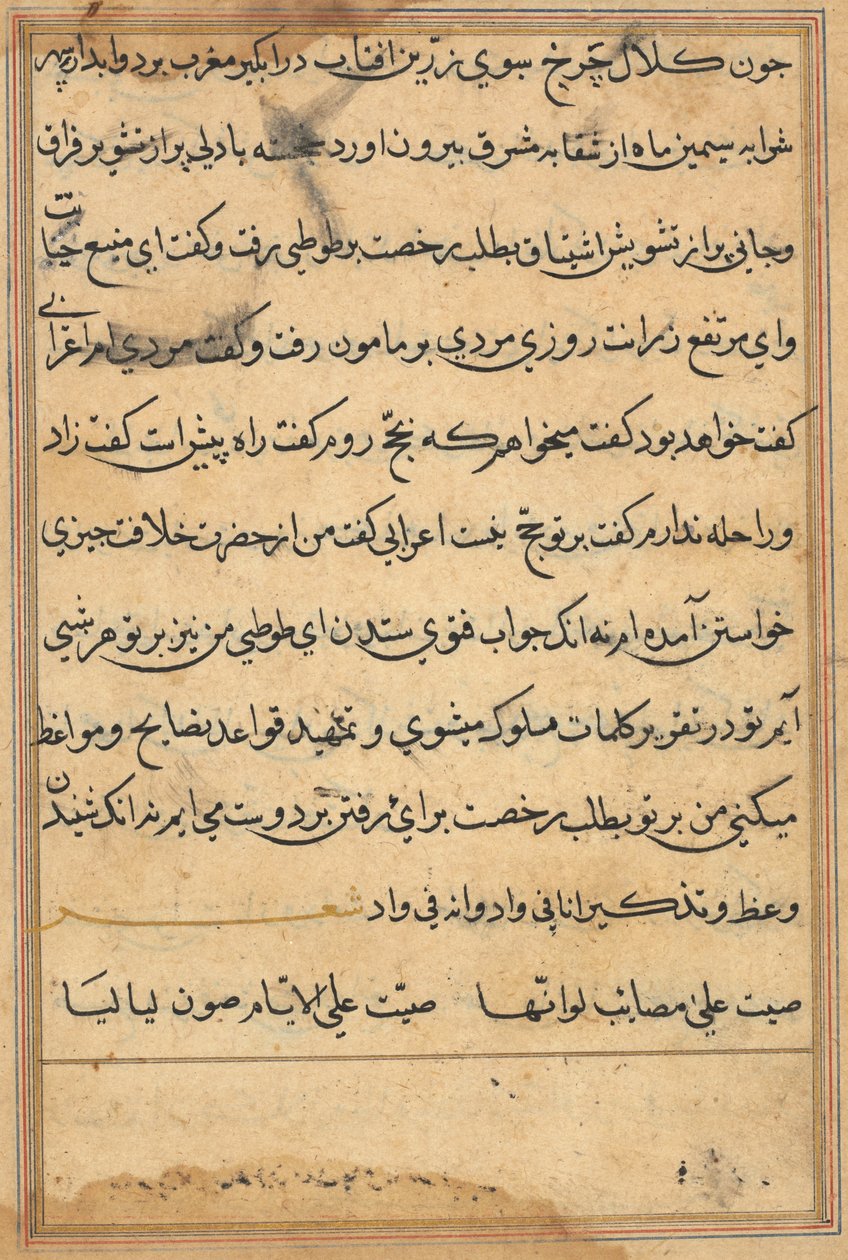 جون کلال چرخ سبوي زرّین افتاب در ابکیر مغرب برد وابدار سپهر
شرابه سیمین ماه از شقابه مشرق بیرون اورد خجسته بادلي پر از تشویر فراق
وجاني پر از تشویش اشتیاق بطلب رخصت بر طوطي رفت وکفت اي منبع حیات
واي مرتفع زرانت روزي مردي بر مامون رفت وکفت مردي ام اعرابي
کفت خواهد بود کفت میخواهم که بحجّ روم کفت راه پیش است کفت زاد
وراحله ندارم کفت بر تو حجّ نیست اعرابي کفت من از حضرت خلافت جیزي
خواستن آمده ام نه انک جواب فتوي ستدن اي طوطي من نیز بر تو هر شبي
آیم تو در تقویر کلمات ملوک میشوي و تمهید قواعد نصایح ومواعظ
میکني من بر تو بطلب رخصت براي رفتن بر دوست مي ایم نه انک شنیدن
وعظ وتذکیر انا في واد وانه في واد شعر
صبت علیٰ مصائب لوانّها صبّت علي الایّام صون لیالیَا